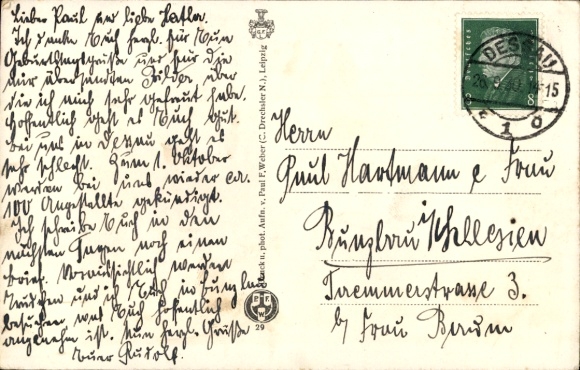 Lieber Paul und liebe Käthe.
Ich danke Euch herzl. für Eure
Geburtstagsgrüße und für die
mir übersandten Bilder über
die ich mich sehr gefreut habe.
Hoffentlich geht es Euch gut.
bei uns in Dessau geht es
sehr schlecht. Zum 1. Oktober
wurden bei uns wieder ca.
100 Angestellte gekündigt.
Ich schreibe Euch in den
nächsten Tagen noch einen
Brief. Voraussichtlich werden
und ich Euch in Bunzlau
besuchen was Euch hoffentlich
angenehm ist. Nun herzl. Grüße
Euer Rudolf.
Druck u. phot. Aufn. v. Paul F. Weber (C. Drechsler N.), Leipzig
P. F. W.
29
Deutsches Reich
8 8
DESSAU
15
* 1 o
Herrn
Paul Hartmann e Frau
Bunzlau i/Schlesien
Straße 3.
b/ Frau Baum